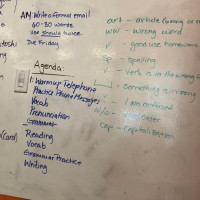 AM Write a formal email
60-80 words
use should twice
Due Friday
Agenda:
1. Warmup Telephone
Practice Phone Messages
Vocab
Pronunciation
Grammar
Reading
Vocab
Grammar Practice
Writing
art - article
ww - wrong word
✓ - good use homework
sp - spelling
verb is in the wrong
something is wrong
I am confused
w/o - order
cap - capitalization